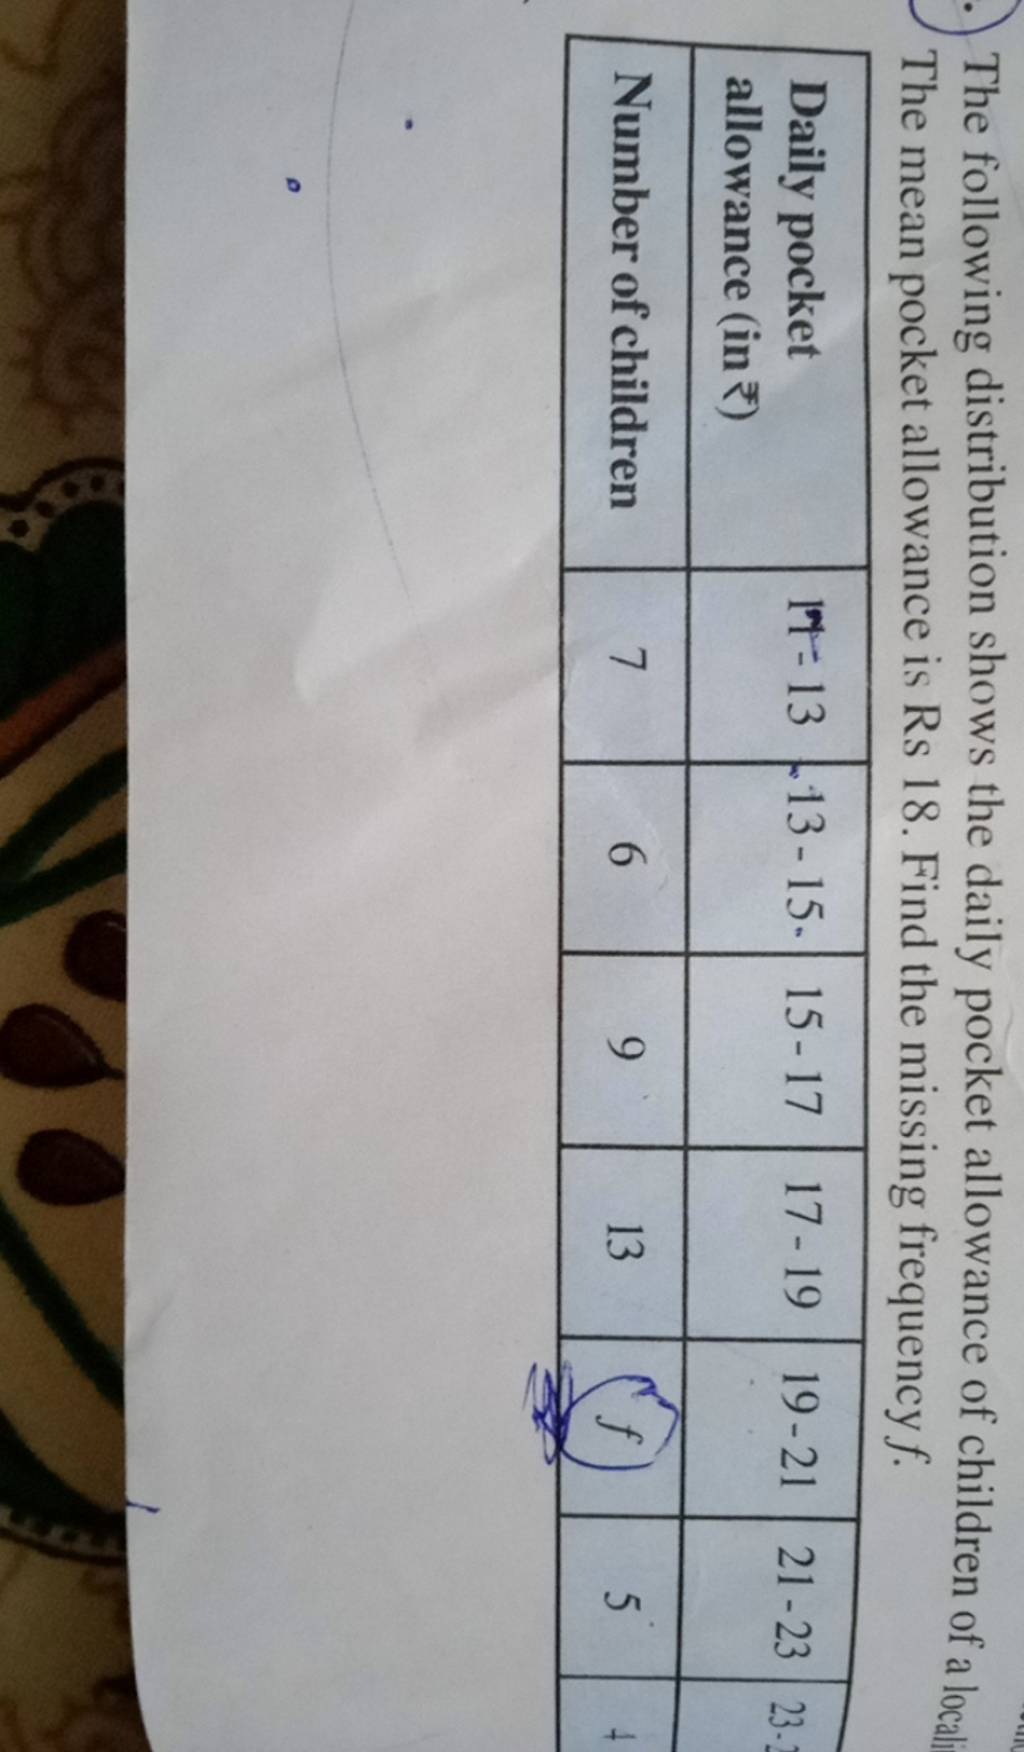 The following distribution shows the daily pocket allowance of children of a
The mean pocket allowance is Rs 18. Find the missing frequency f.
Daily pocket allowance (in ₹) 11-13 13-15 15-17 17-19 19-21 21-23
Number of children 7 6 9 13 f 5 4